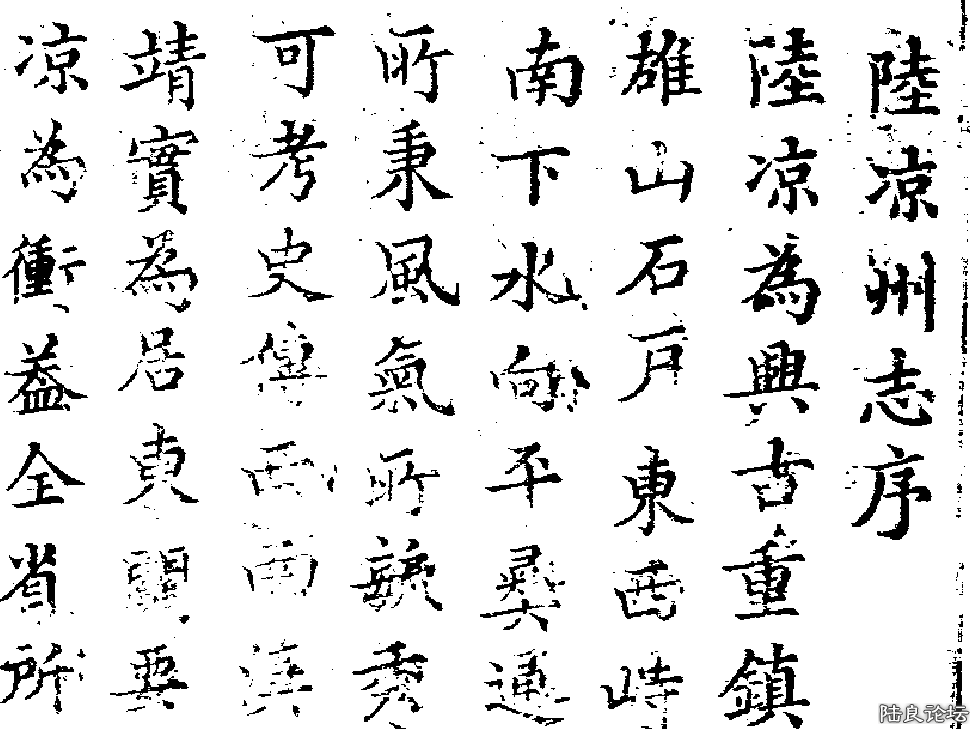 陸凉州志序
陸凉為興古重鎮
雄山石戸東西峙
南下水向平彜通
所秉風氣所毓秀
可考史傳西南滇
靖實為居東關要
凉為衝葢全省所
陆良论坛